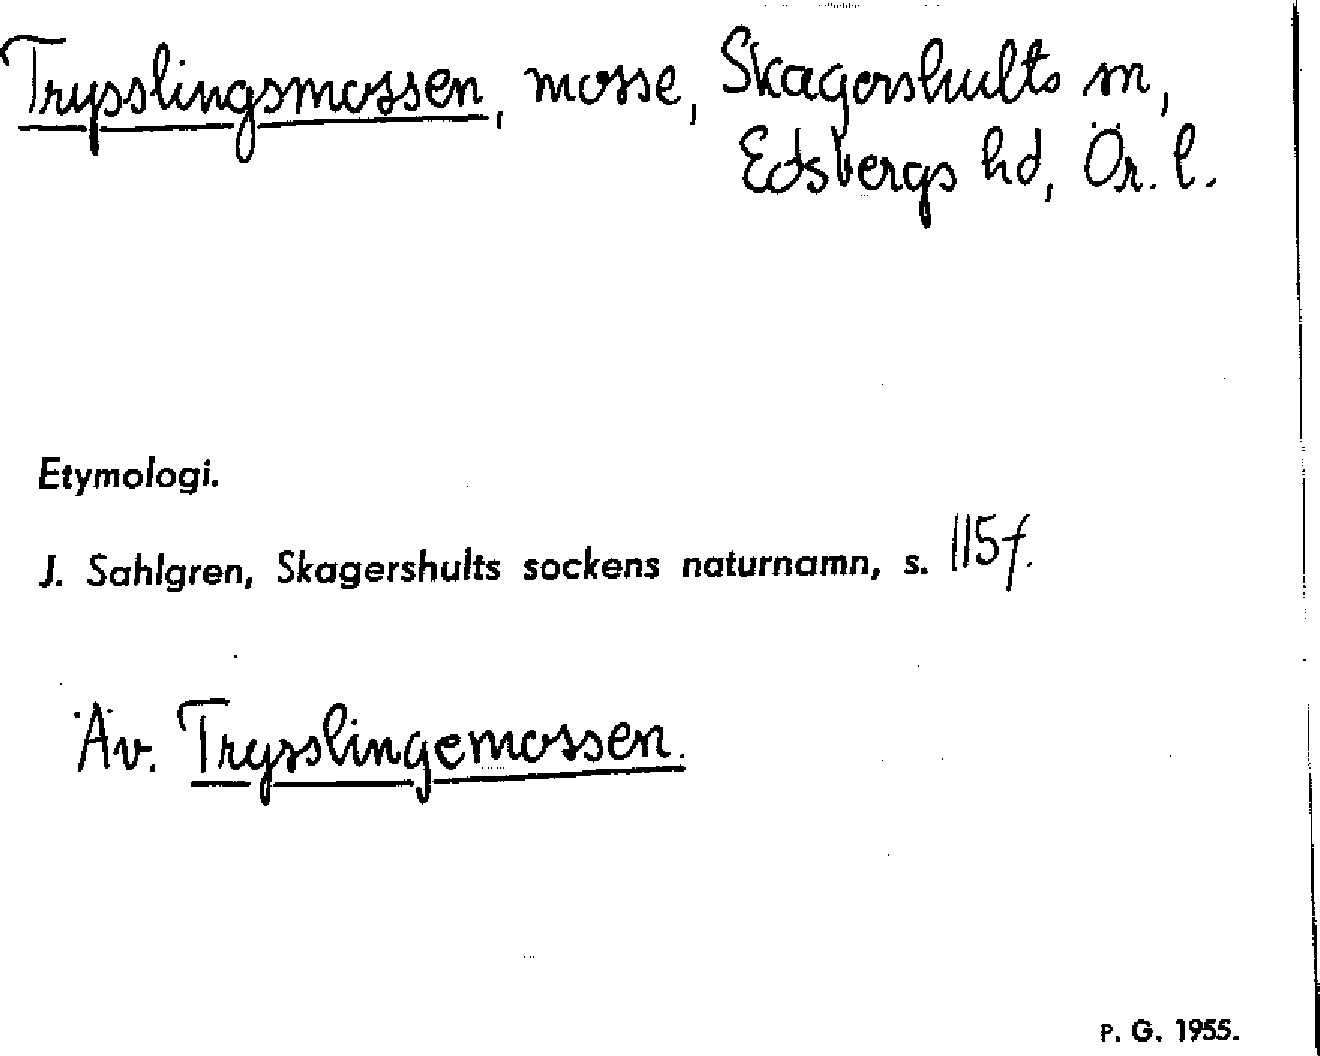 Trysslingsmossen, mosse, Skagershults sn,
Edsbergs hd, Ör. l.
Etymologi.
J. Sahlgren, Skagershults sockens naturnamn, s. 115 f.
Äv. Trysslingemossen.
P. G. 1955.